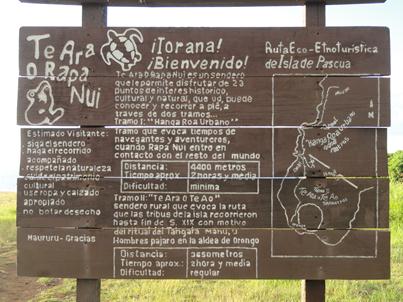 Te Ara
O Rapa
Nui
¡Iorana!
¡Bienvenido!
Ruta Eco-Etnoturística
de Isla de Pascua
Te Ara O Rapa Nui es un sendero
que le permite disfrutar de 23
puntos de interes historico,
cultural y natural, que ud. puede
conocer y recorrer a pié, a
través de dos tramos...
Tramo I: "Hanga Roa Urbano"
tramo que evoca tiempos de
navegantes y aventureros,
cuando Rapa Nui entro en
contacto con el resto del mundo
Distancia: 4000 metros
Tiempo aprox. 2 horas y media
Dificultad: minima
Tramo II: "Te Ara O Te Ao"
sendero rural que evoca la ruta
que las tribus de la isla recorrieron
hasta fin de S. XIX con motivo
del ritual del Tangata Manu, u
Hombres pajaro en la aldea de Orongo
Distancia:
Tiempo aprox.: 2 hora y media
Dificultad: regular
Estimado Visitante:
siga el sendero
haga el recorrido
acompañado
respete la naturaleza
cultural
use ropa y calzado
apropiado
no botar desecho
Maururu - Gracias
Hanga Roa urbano
Te Ara o Te Ao